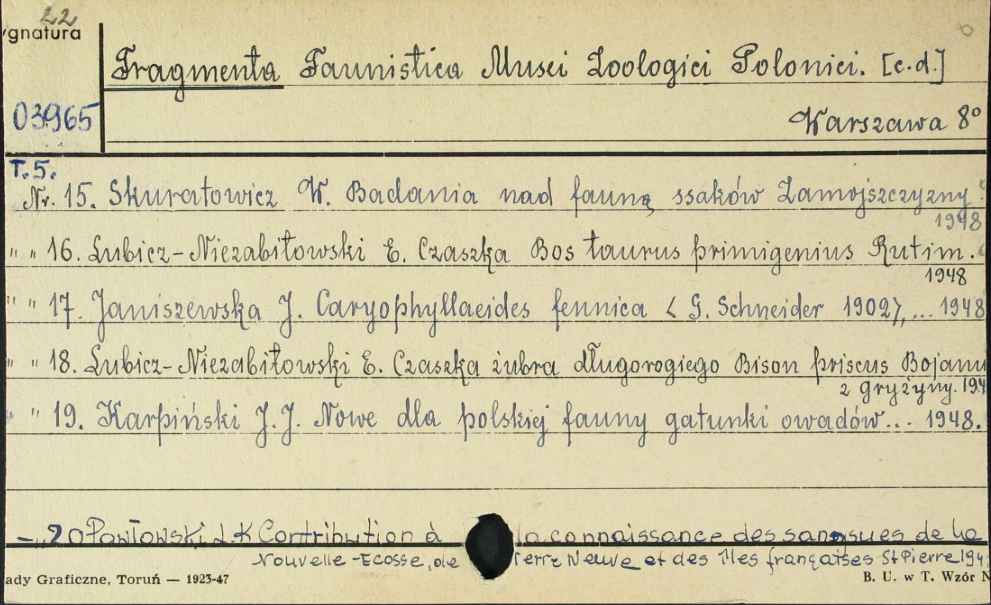 22
ygnatura
Fragmenta Faunistica Musei Zoologici Polonici. [c.d.]
03965
Warszawa 8°
T.5.
Nr. 15. Skuratowicz W. Badania nad fauną ssaków Zamojszczyzny
1948
" " 16. Lubicz-Niezabitowski E. Czaszka Bos taurus primigenius Rutim.
1948
" " 17. Janiszewska J. Caryophyllaeides fennica < G. Schneider 1902>,... 1948
" " 18. Lubicz-Niezabitowski E. Czaszka żubra długorogiego Bison priscus Bojanu
z Gryżyny. 194
" " 19. Karpiński J.J. Nowe dla polskiej fauny gatunki owadów... 1948.
- " 20 Pawłowski L.K Contribution à la connaissance des sangsues de la
Nouvelle-Ecosse, de Terre Neuve et des Iles françaises St Pierre 194
ady Graficzne, Toruń — 1923-47
B. U. w T. Wzór N